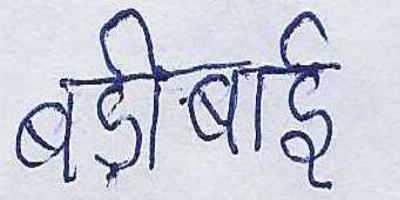 बड़ीबाई